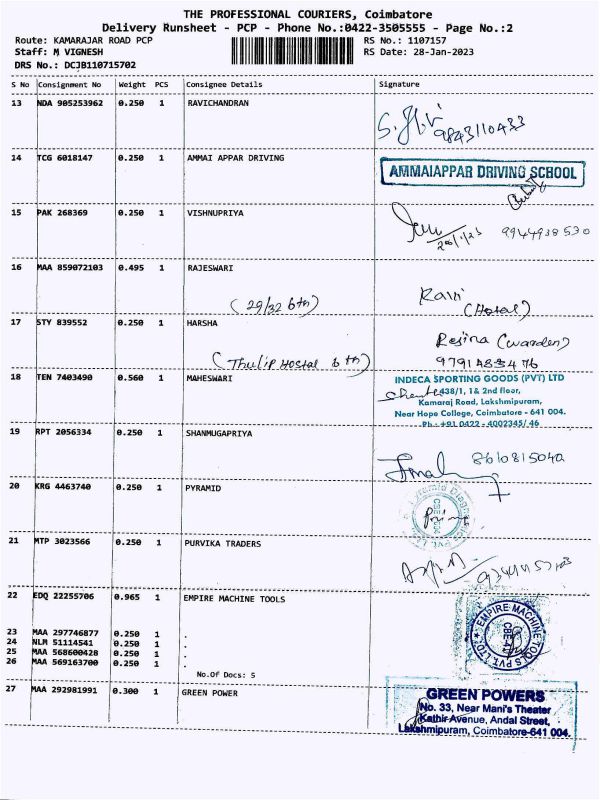 THE PROFESSIONAL COURIERS, Coimbatore
Delivery Runsheet - PCP - Phone No.:0422-3505555 - Page No.:2
Route: KAMARAJAR ROAD PCP
Staff: M VIGNESH
DRS No.: DCJB110715702
RS No.: 1107157
RS Date: 28-Jan-2023
S No Consignment No Weight PCS Consignee Details Signature
13 NDA 905253962 0.250 1 RAVICHANDRAN
9843110433
14 TCG 6018147 0.250 1 AMMAI APPAR DRIVING
AMMAIAPPAR DRIVING SCHOOL
15 PAK 268369 0.250 1 VISHNUPRIYA
9944938530
16 MAA 859072103 0.495 1 RAJESWARI
(29/32 6th) Ravi (Hostal)
17 STY 839552 0.250 1 HARSHA
Regina (warden)
(Thulip Hostal 6th)
18 TEN 7403490 0.560 1 MAHESWARI
INDECA SPORTING GOODS (PVT) LTD
438/1, 1& 2nd floor,
Kamaraj Road, Lakshmipuram,
Near Hope College, Coimbatore - 641 004.
Ph : +91 0422 - 4002345/ 46
19 RPT 2056334 0.250 1 SHANMUGAPRIYA
20 KRG 4463740 0.250 1 PYRAMID
21 MTP 3023566 0.250 1 PURVIKA TRADERS
22 EDQ 22255706 0.965 1 EMPIRE MACHINE TOOLS
EMPIRE MACHINE TOOLS PVT. LTD.
CBE-4
23 MAA 297746877 0.250 1 .
24 NLM 51114541 0.250 1 .
25 MAA 568600428 0.250 1 .
26 MAA 569163700 0.250 1 .
No.Of Docs: 5
27 MAA 292981991 0.300 1 GREEN POWER
GREEN POWERS
No. 33, Near Mani's Theater
Kathir Avenue, Andal Street,
Lakshmipuram, Coimbatore-641 004.